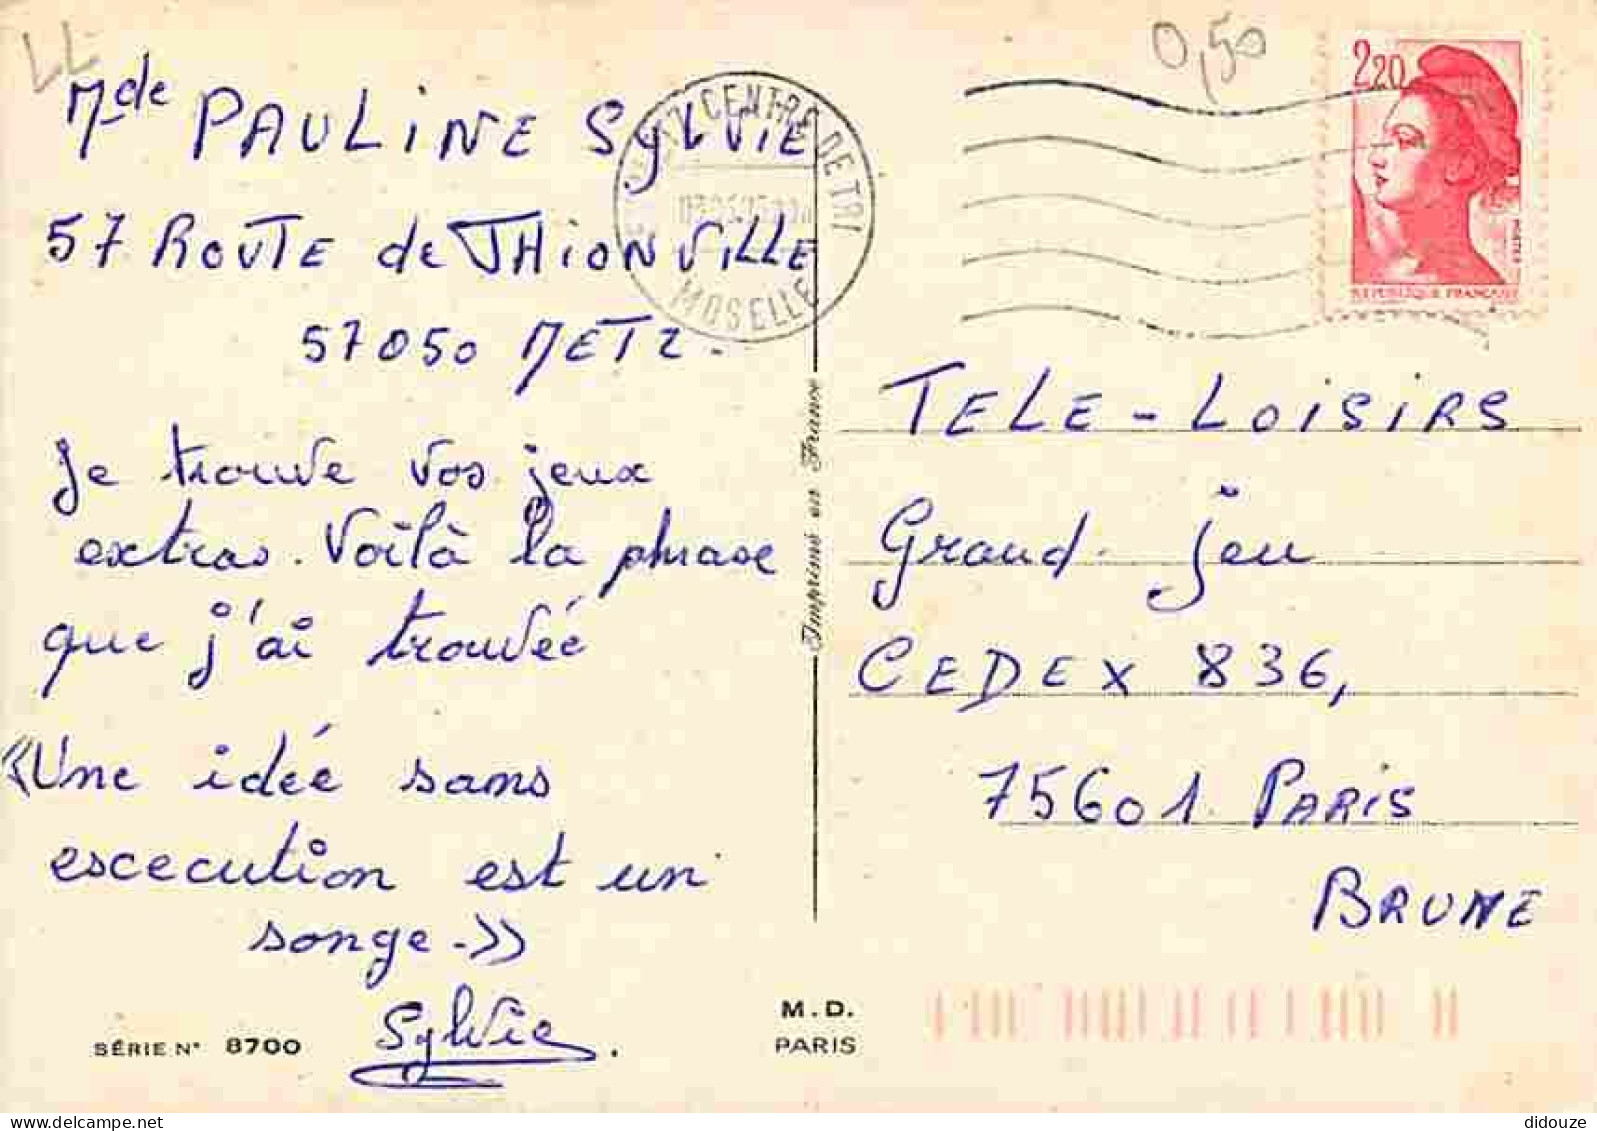 LL
0,50
Mde PAULINE SYLVIE
57 ROUTE de THIONVILLE
57050 METZ.
Je trouve vos jeux
extras. Voilà la phrase
que j'ai trouvée
«Une idée sans
escecution est un
songe.»
Sylvie.
SÉRIE N° 8700
M.D.
PARIS
Imprimé en France
METZ CENTRE DE TRI
MOSELLE
2,20
REPUBLIQUE FRANÇAISE
TELE-LOISIRS
Grand Jeu
CEDEX 836,
75601 PARIS
BRUNE
didouze